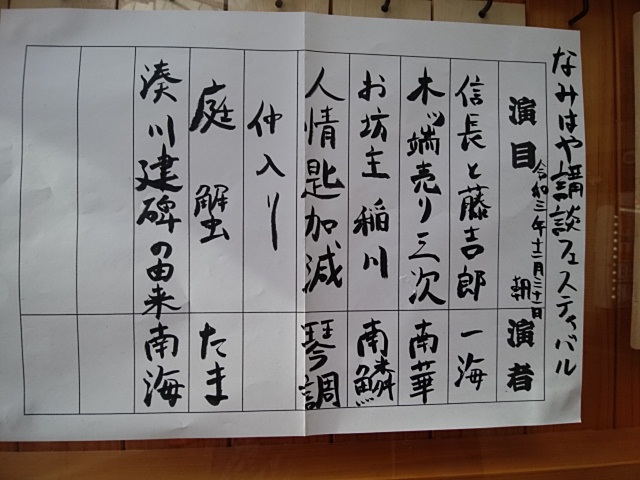 なみはや講談フェスティバル
令和三年十二月三十一日 朝
演目 演者
信長と藤吉郎 一海
木ッ端売り三次 南華
お坊主稲川 南鱗
人情匙加減 琴調
仲入り
庭蟹 たま
湊川建碑の由来 南海